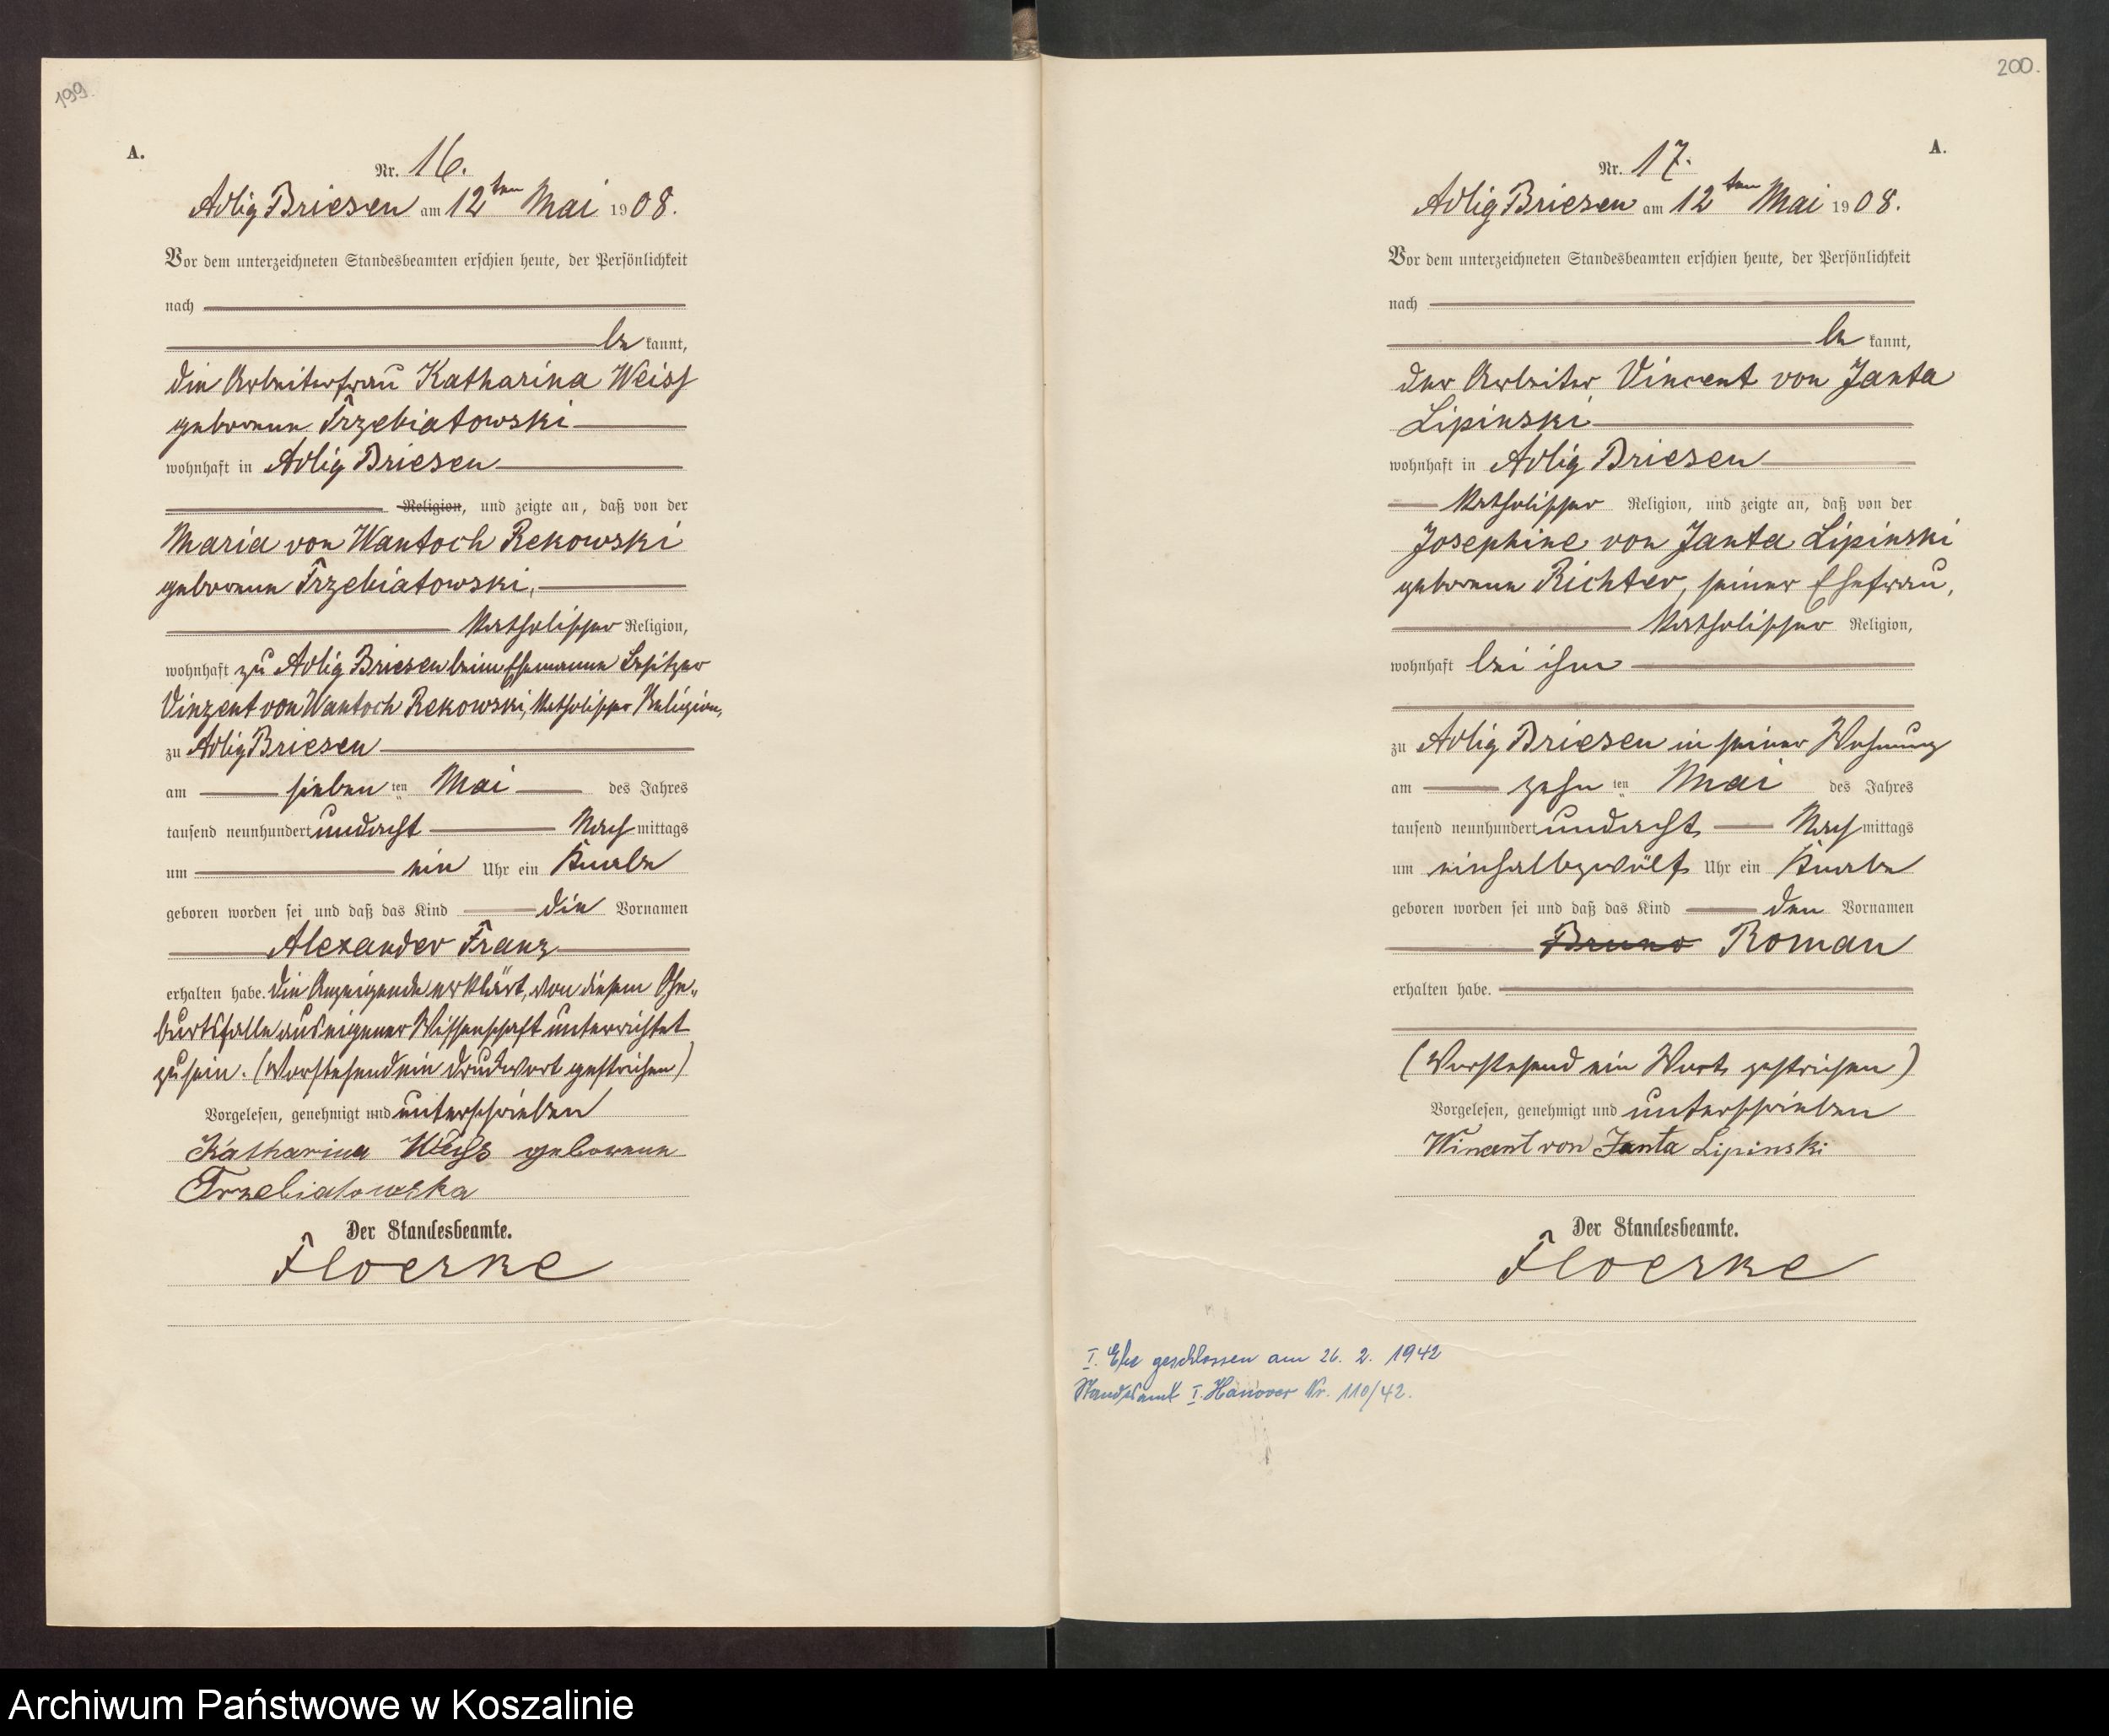 199.
A.
Nr. 16.
Adlig Briesen am 12ten Mai 1908.
Vor dem unterzeichneten Standesbeamten erschien heute, der Persönlichkeit
nach
be kannt,
die Arbeiterfrau Katharina Weiss
geborene Trzebiatowski
wohnhaft in Adlig Briesen
Religion, und zeigte an, daß von der
Maria von Wantoch Rekowski
geborene Trzebiatowski,
katholischer Religion,
wohnhaft zu Adlig Briesen beim Ehemanne Besitzer
Vinzent von Wantoch Rekowski, katholischer Religion,
zu Adlig Briesen
am sieben ten Mai des Jahres
tausend neunhundert undacht Nach mittags
um ein Uhr ein Knabe
geboren worden sei und daß das Kind die Vornamen
Alexander Franz
erhalten habe. Die Anzeigende erklärt, von diesem Ge„
burtsfalle aus eigener Wissenschaft unterrichtet
zu sein. (Vorstehend ein Druckwort gestrichen)
Vorgelesen, genehmigt und unterschrieben
Katharina Weiss geborene
Trzebiatowska
Der Standesbeamte.
Floerke
200.
A.
Nr. 17.
Adlig Briesen am 12ten Mai 1908.
Vor dem unterzeichneten Standesbeamten erschien heute, der Persönlichkeit
nach
be kannt,
der Arbeiter Vincent von Janta
Lipinski
wohnhaft in Adlig Briesen
katholischer Religion, und zeigte an, daß von der
Josephine von Janta Lipinski
geborene Richter, seiner Ehefrau,
katholischer Religion,
wohnhaft bei ihm
zu Adlig Briesen in seiner Wohnung
am zehn ten Mai des Jahres
tausend neunhundert undacht Nach mittags
um einhalbzwölf Uhr ein Knabe
geboren worden sei und daß das Kind den Vornamen
Bruno Roman
erhalten habe.
(Vorstehend ein Wort gestrichen)
Vorgelesen, genehmigt und unterschrieben
Wincent von Janta Lipinski
Der Standesbeamte.
Floerke
I. Ehe geschlossen am 26. 2. 1942
Standesamt I. Hanover Nr. 110/42.
Archiwum Państwowe w Koszalinie